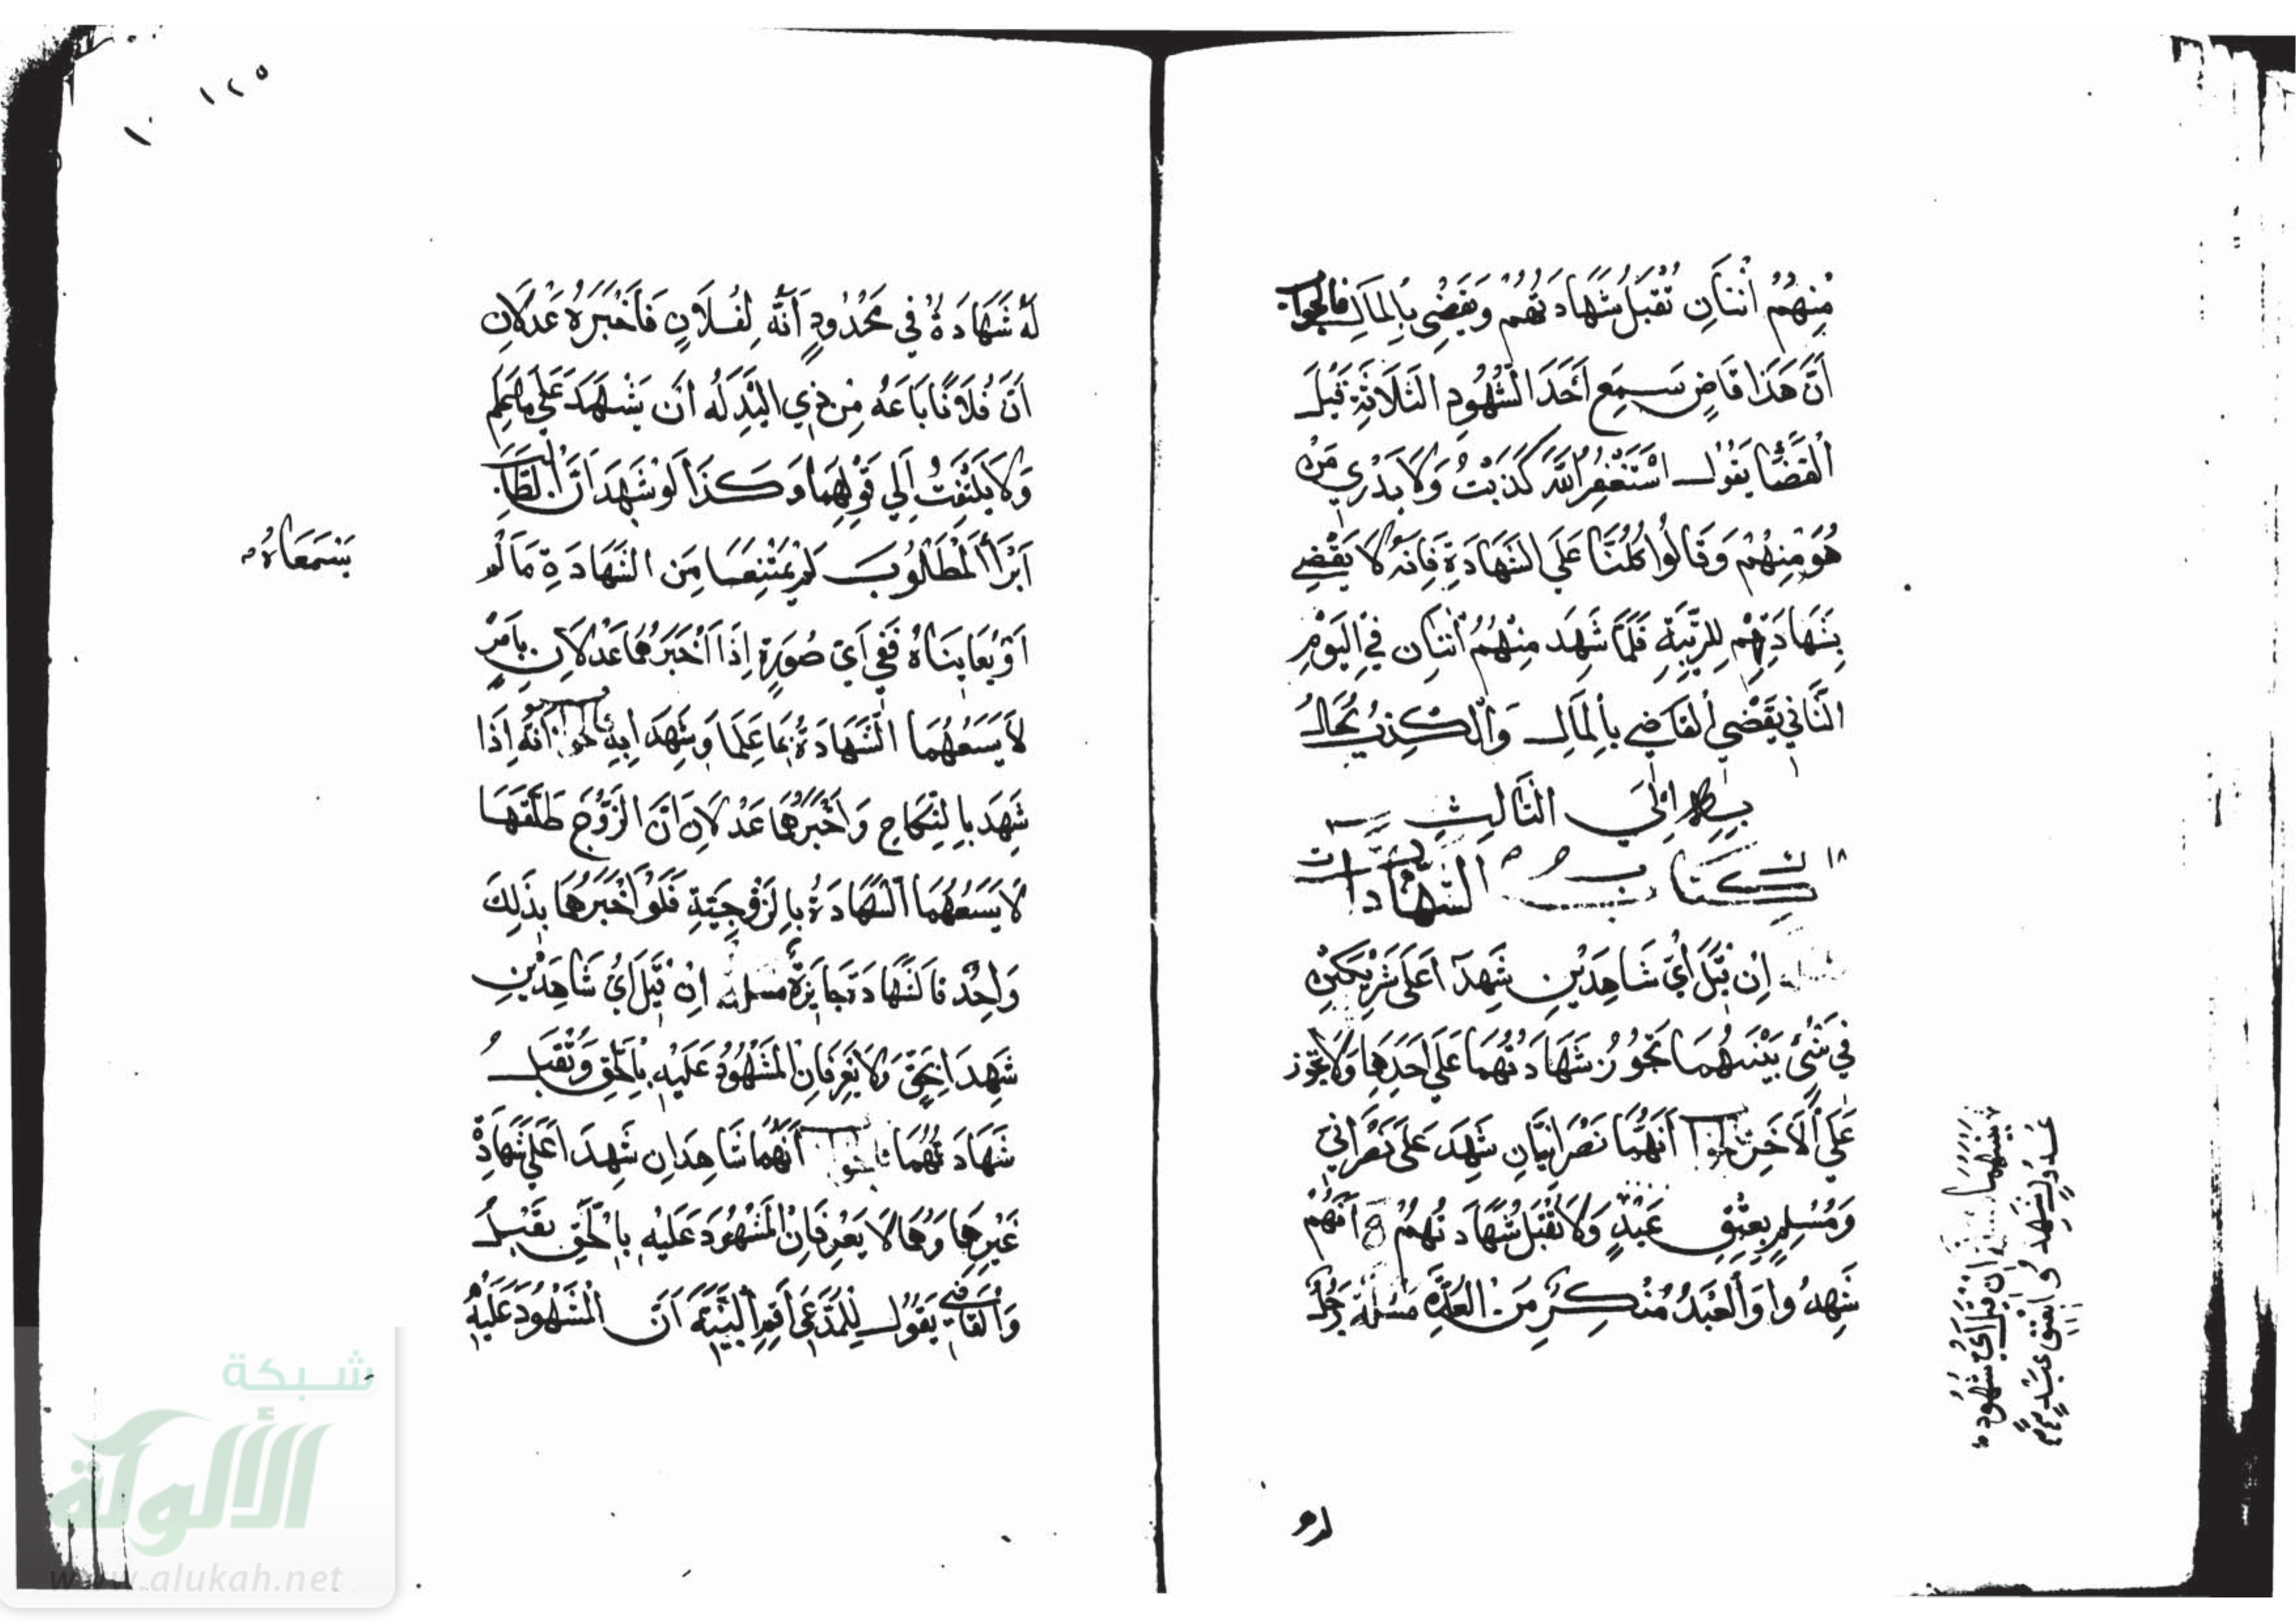 مِنْهُمُ اثْنَانِ تُقْبَلُ شَهَادَتُهُمْ وَيَقْضِي بِالْمَالِ فَالْجَوَابُ
أَنَّ هَذَا قَاضٍ سَمِعَ أَحَدَ الشُّهُودِ الثَّلَاثَةِ قَبْلَ
الْقَضَاءِ يَقُولُ اسْتَغْفِرُ اللَّهَ كَذَبْتُ وَلَا يَدْرِي مَنْ
هُوَ مِنْهُمْ وَقَالُوا كُلُّنَا عَلَى الشَّهَادَةِ فَإِنَّهُ لَا يَقْضِي
بِشَهَادَتِهِمْ لِلرِّيبَةِ فَلَمَّا شَهِدَ مِنْهُمُ اثْنَانِ فِي الْيَوْمِ
الثَّانِي يَقْضِي الْقَاضِي بِالْمَالِ وَالْكِذْبُ بِحَالِهِ
إِلَى الثَّالِثِ
١٨ كِتَابُ الشَّهَادَاتِ
مسألة إِنْ قِيلَ أَيُّ شَاهِدَيْنِ شَهِدَا عَلَى شَرِيكَيْنِ
فِي شَيْءٍ بَيْنَهُمَا تَجُوزُ شَهَادَتُهُمَا عَلَى أَحَدِهِمَا وَلَا تَجُوزُ
عَلَى الْآخَرِ فالجواب أَنَّهُمَا نَصْرَانِيَّانِ شَهِدَ عَلَى نَصْرَانِيٍّ
وَمُسْلِمٍ بِعِتْقِ عَبْدٍ وَلَا تُقْبَلُ شَهَادَتُهُمْ أَنَّهُمْ
شَهِدُوا وَالْعَبْدُ مُنْكِرٌ مَسْئَلَة رَجُلٌ
بَيْنَهُمَا إِنْ قِيلَ أَيُّ شُهُودٍ
عُدُولٍ شَهِدُوا بِعِتْقِ عَبْدٍ
١٢٥
لَهُ شَهَادَةٌ فِي مَحْدُودٍ أَنَّهُ لِفُلَانٍ فَأَخْبَرَهُ عَدْلَانِ
أَنَّ فُلَانًا بَاعَهُ مِنْ ذِي الْيَدِ لَهُ أَنْ يَشْهَدَ عَلَى مَا عَلِمَ
وَلَا يَلْتَفِتُ إِلَى قَوْلِهِمَا وَكَذَا لَوْ شَهِدَا أَنَّ الطَّالِبَ
أَبْرَأَ الْمَطْلُوبَ لَمْ يَمْتَنِعَا مِنَ الشَّهَادَةِ مَا لَمْ
يَسْمَعَاهُ
أَوْ يُعَايِنَاهُ فَفِي أَيِّ صُورَةٍ إِذَا أَخْبَرَهُمَا عَدْلَانِ بِأَمْرٍ
لَا يَسَعُهُمَا الشَّهَادَةُ بِمَا عَلِمَا وَشَهِدَا بِهِ فالجواب أَنَّهُ إِذَا
شَهِدَ بِالنِّكَاحِ وَأَخْبَرَهُمَا عَدْلَانِ أَنَّ الزَّوْجَ طَلَّقَهَا
لَا يَسَعُهُمَا الشَّهَادَةُ بِالزَّوْجِيَّةِ فَلَوْ أَخْبَرَهُمَا بِذَلِكَ
وَاحِدٌ فَالشَّهَادَةُ جَائِزَةٌ مسئلة إِنْ قِيلَ أَيُّ شَاهِدَيْنِ
شَهِدَا بِحَقٍّ وَلَا يَعْرِفَانِ الْمَشْهُودَ عَلَيْهِ بِالْحَقِّ وَتُقْبَلُ
شَهَادَتُهُمَا فالجواب أَنَّهُمَا شَاهِدَانِ شَهِدَا عَلَى شَهَادَةِ
غَيْرِهِمَا وَهُمَا لَا يَعْرِفَانِ الْمَشْهُودَ عَلَيْهِ بِالْحَقِّ يُقْبَلُ
وَالْقَاضِي يَقُولُ لِلْمُدَّعِي أَقِمِ الْبَيِّنَةَ أَنَّ الْمَشْهُودَ عَلَيْهِ
شبكة
الألوكة
www.alukah.net